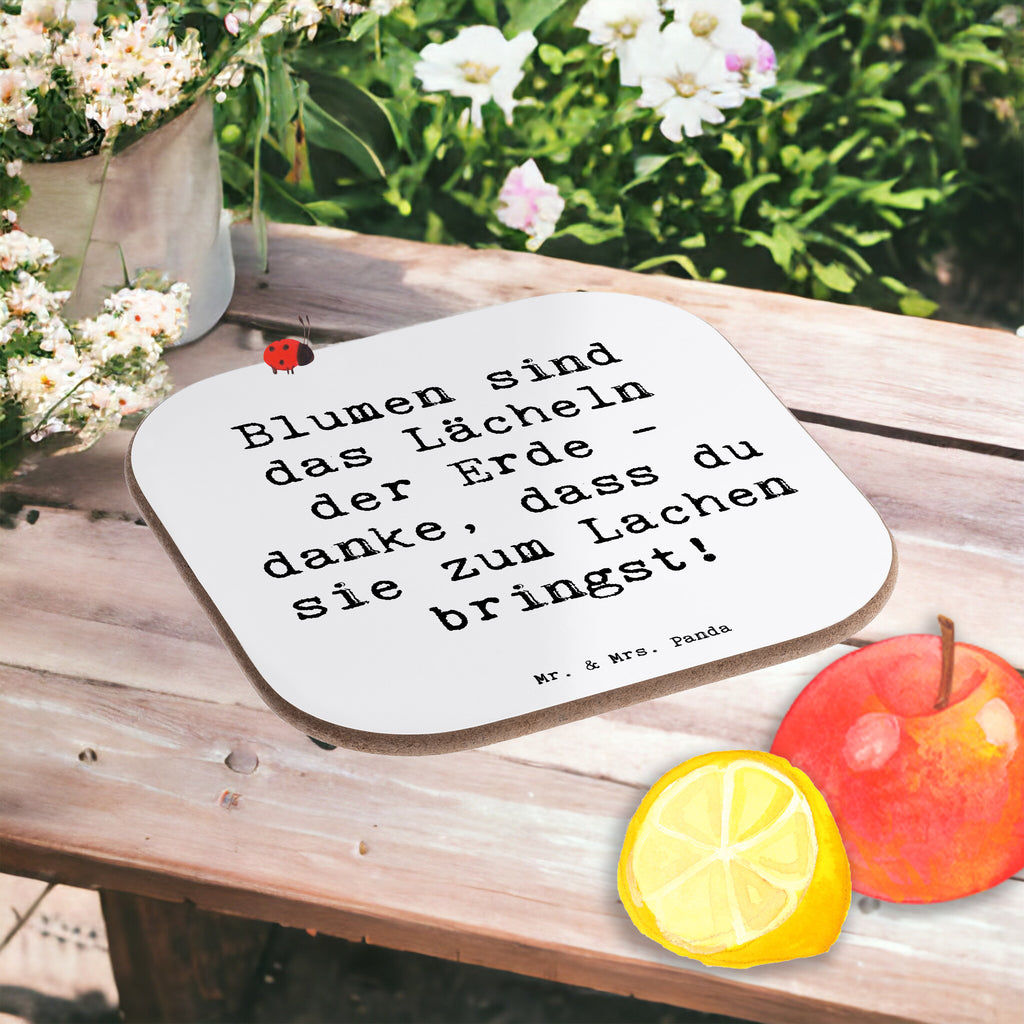 Blumen sind
das Lächeln
der Erde -
danke, dass du
sie zum Lachen
bringst!
Mr. & Mrs. Panda